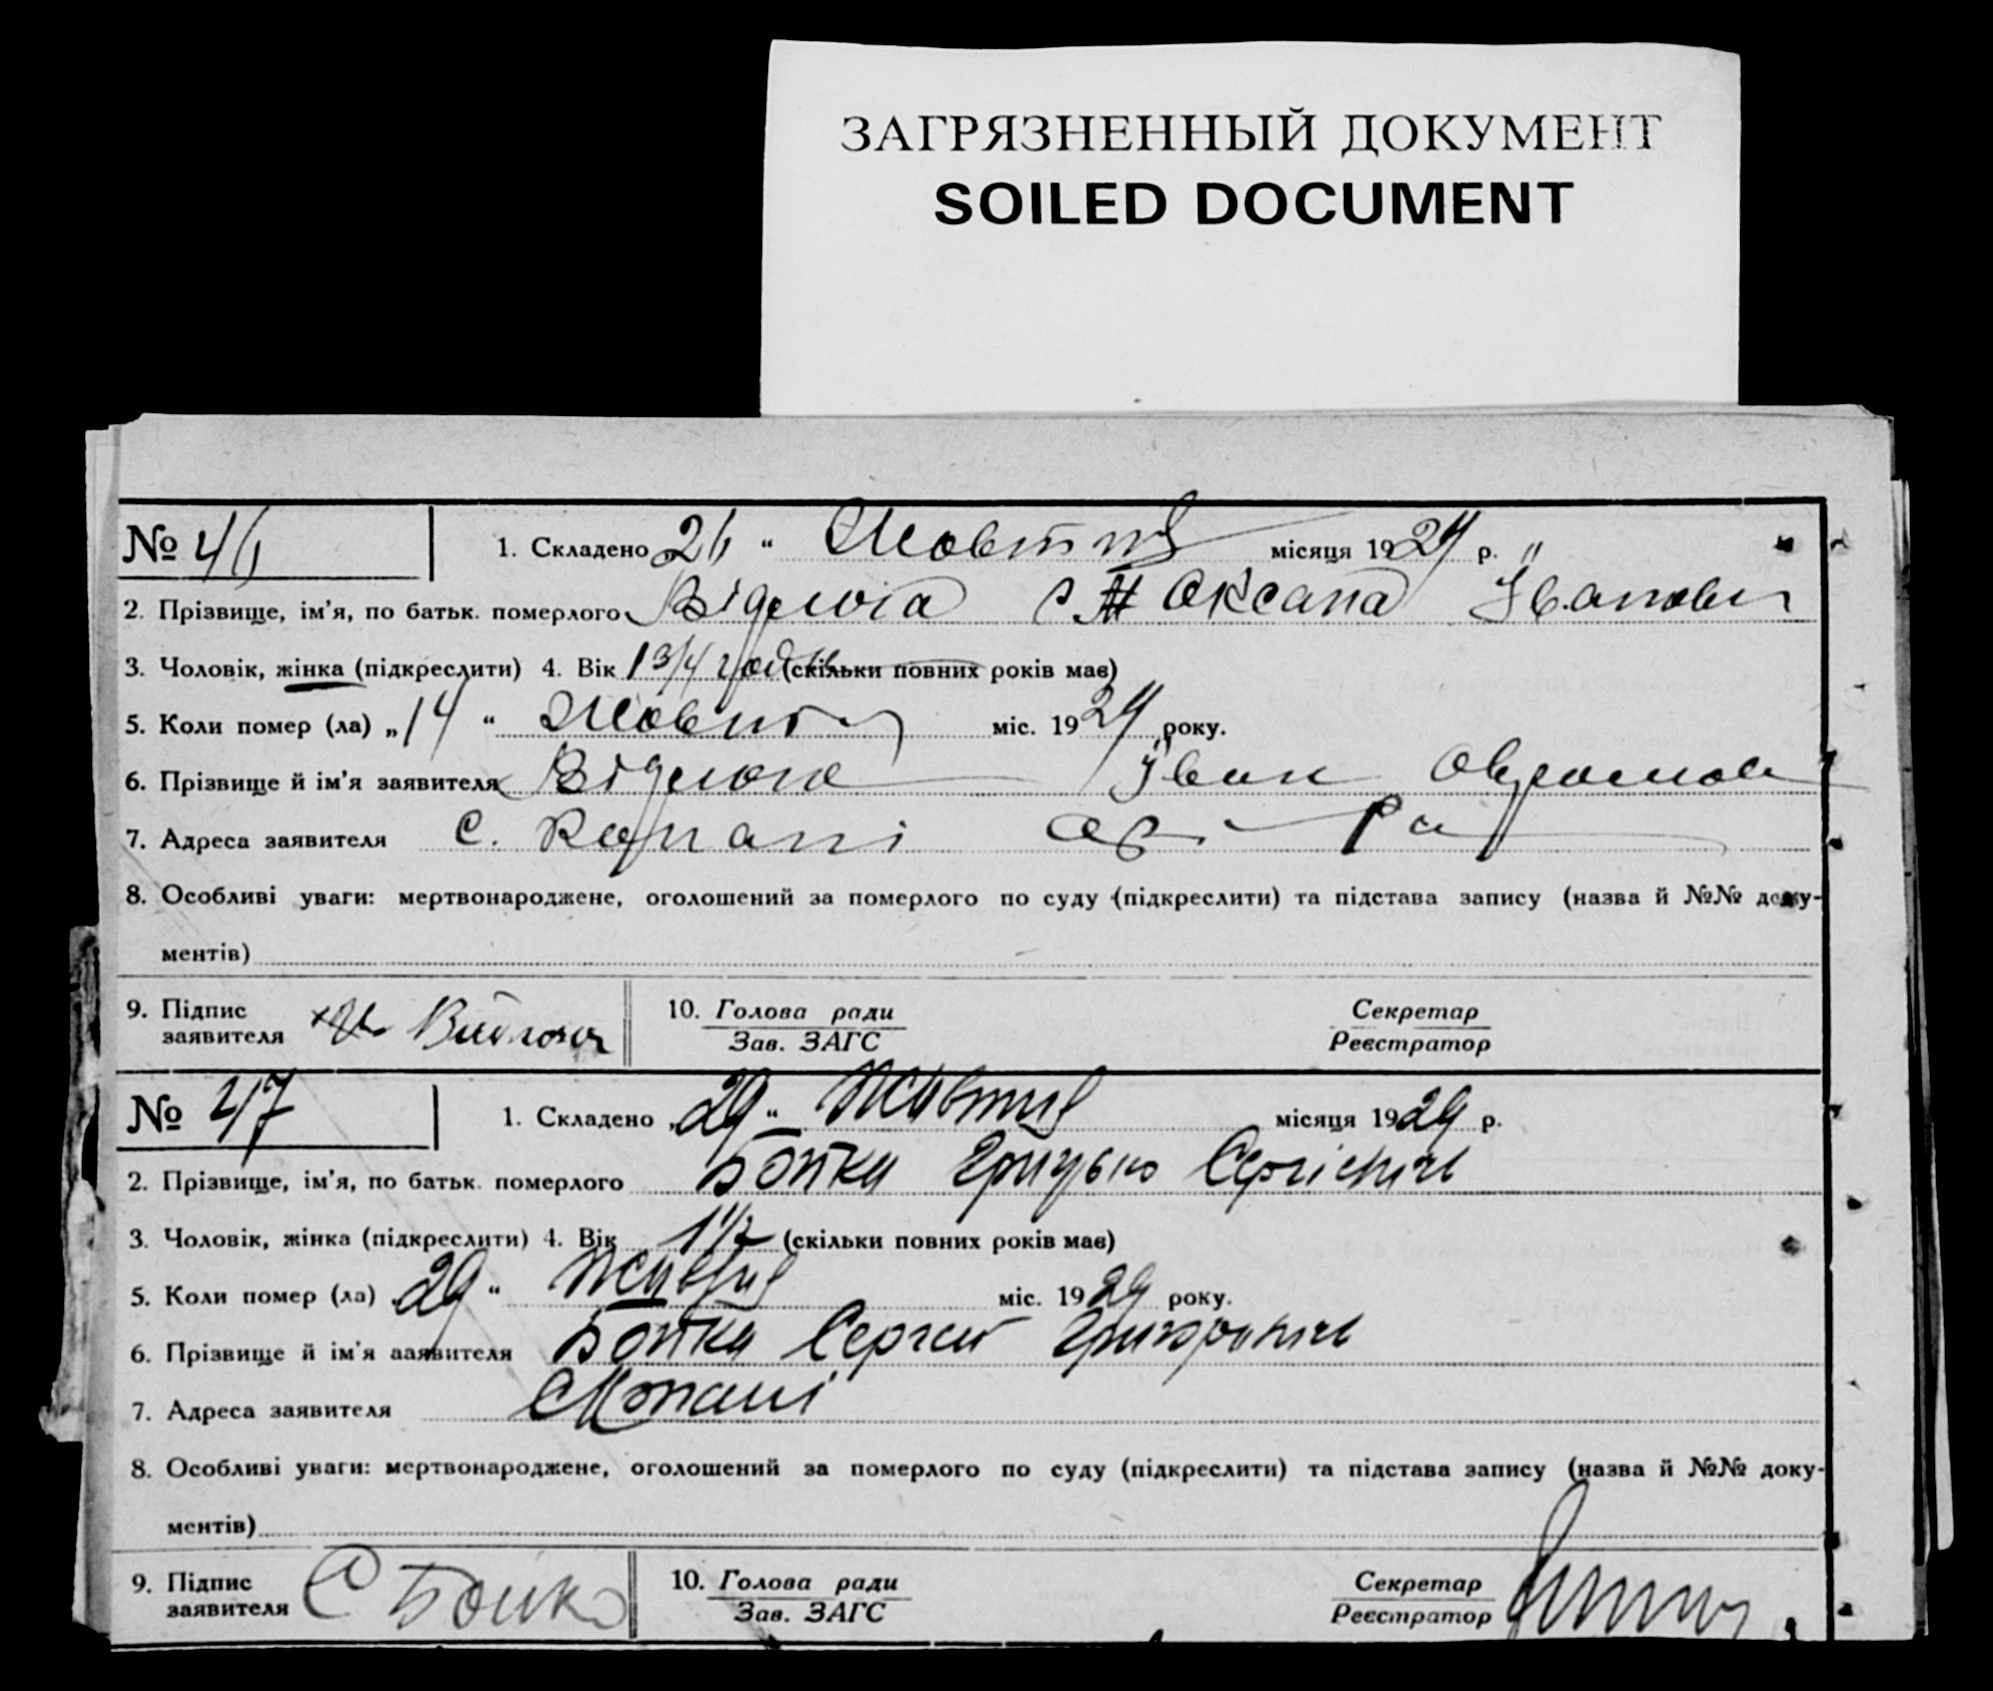 ЗАГРЯЗНЕННЫЙ ДОКУМЕНТ
SOILED DOCUMENT
№ 46 1. Складено „26“ Жовтня місяця 1929 р.
2. Прізвище, ім'я, по батьк. померлого Оксана Іванови
3. Чоловік, жінка (підкреслити) 4. Вік 1 3/4 (скільки повних років має)
5. Коли помер (ла) „14“ Жовтня міс. 1929 року.
6. Прізвище й ім'я заявителя Іван
7. Адреса заявителя с.
8. Особливі уваги: мертвонароджене, оголошений за померлого по суду (підкреслити) та підстава запису (назва й №№ доку-
ментів)
9. Підпис заявителя
10. Голова ради Секретар
Зав. ЗАГС Реєстратор
№ 47 1. Складено „29“ Жовтня місяця 1929 р.
2. Прізвище, ім'я, по батьк. померлого Бойко Грицько
3. Чоловік, жінка (підкреслити) 4. Вік 1 1/2 (скільки повних років має)
5. Коли помер (ла) 29“ Жовтня міс. 1929 року.
6. Прізвище й ім'я заявителя Бойко Сергей
7. Адреса заявителя
8. Особливі уваги: мертвонароджене, оголошений за померлого по суду (підкреслити) та підстава запису (назва й №№ доку-
ментів)
9. Підпис заявителя С Бойко
10. Голова ради Секретар
Зав. ЗАГС Реєстратор